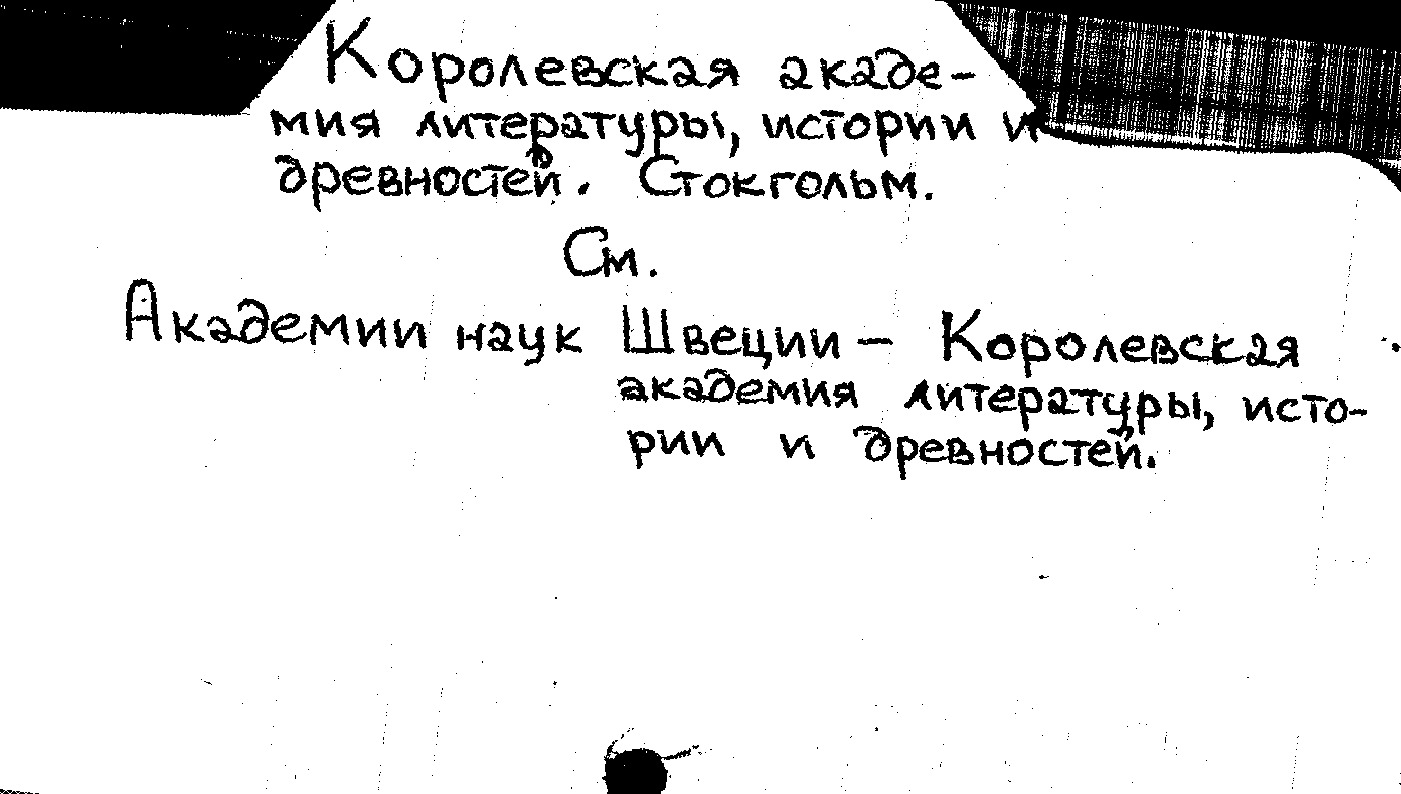 Королевская акаде-
мия литературы, истории и
древностей. Стокгольм.
См.
Академии наук Швеции – Королевская
академия литературы, исто-
рии и древностей.